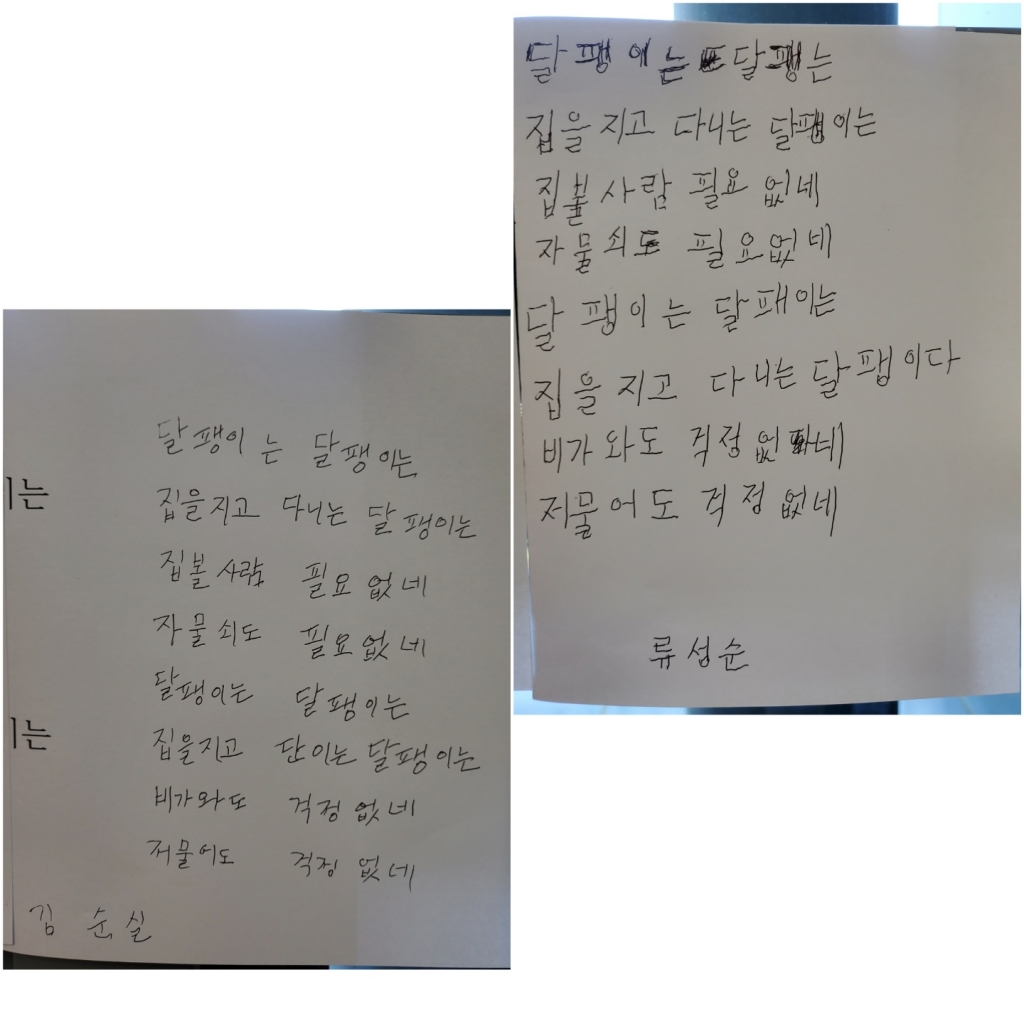 이는
이는
달팽이 는 달팽이는
집을지고 다니는 달팽이는
집볼 사람 필요 없네
자물쇠도 필요없네
달팽이는 달팽이는
집을지고 단이는 달팽이는
비가와도 걱정 없네
저물어도 걱정 없네
김 순실
달팽이는 달팽는
집을 지고 다니는 달팽이는
집볼 사람 필요 없네
자물쇠도 필요없네
달팽이는 달패이는
집을 지고 다니는 달팹이다
비가 와도 걱정 없네
저물어도 걱정 없네
류성순